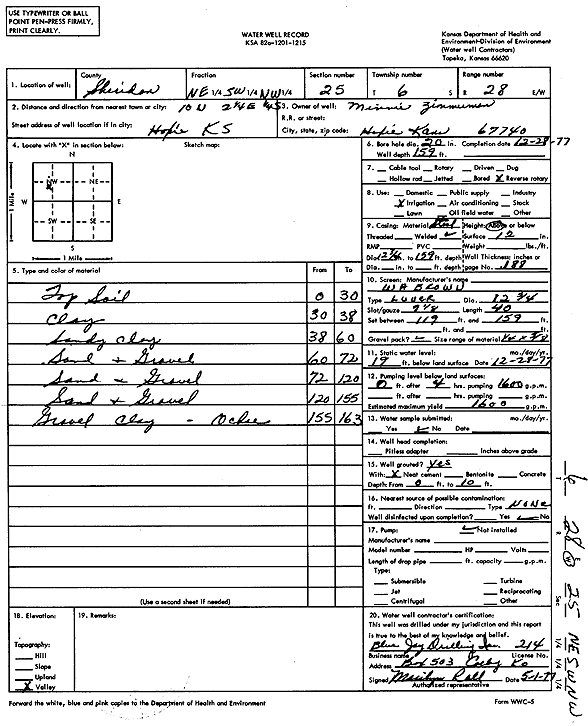 USE TYPEWRITER OR BALL
POINT PEN-PRESS FIRMLY,
PRINT CLEARLY.
WATER WELL RECORD
KSA 82a-1201-1215
Kansas Department of Health and
Environment-Division of Environment
(Water well Contractors)
Topeka, Kansas 66620
1. Location of well: County Sheridan Fraction NE 1/4 SW 1/4 NW 1/4 Section number 25 Township number T 6 S Range number R 28 E/W
2. Distance and direction from nearest town or city: 10 N 2 1/4 E
Street address of well location if in city: Hoxie KS
3. Owner of well: Minnie Zimmerman
R.R. or street:
City, state, zip code: Hoxie Kans 67740
4. Locate with "X" in section below: Sketch map:
N
NW NE
W E
SW SE
S
1 Mile
1 Mile
6. Bore hole dia. 20 in. Completion date 12-28-77
Well depth 159 ft.
7. Cable tool Rotary Driven Dug
Hollow rod Jetted Bored X Reverse rotary
8. Use: Domestic Public supply Industry
X Irrigation Air conditioning Stock
Lawn Oil field water Other
9. Casing: Material Steel Height: Above or below
Threaded Welded Surface 12 in.
RMP PVC Weight lbs./ft.
Dia. 12 3/4 in. to 159 ft. depth Wall Thickness: inches or
Dia. in. to ft. depth gage No. .188
5. Type and color of material From To
Top Soil 0 30
Clay 30 38
Sandy Clay 38 60
Sand & Gravel 60 72
Sand & Gravel 72 120
Sand & Gravel 120 155
Gravel Clay - Ochre 155 163
(Use a second sheet if needed)
10. Screen: Manufacturer's name
WA BROWN
Type Louver Dia. 12 3/4
Slot/gauze Length 40
Set between 119 ft. and 159 ft.
ft. and ft.
Gravel pack? Size range of material 1/4 x 3/8
11. Static water level: mo./day/yr.
19 ft. below land surface Date 12-28-77
12. Pumping level below land surfaces:
0 ft. after 4 hrs. pumping 1600 g.p.m.
ft. after hrs. pumping g.p.m.
Estimated maximum yield 1600 g.p.m.
13. Water sample submitted: mo./day/yr.
Yes No Date
14. Well head completion:
Pitless adapter Inches above grade
15. Well grouted? yes
With: X Neat cement Bentonite Concrete
Depth: From 0 ft. to 10 ft.
16. Nearest source of possible contamination:
ft. Direction Type NONE
Well disinfected upon completion? Yes No
17. Pump: Not installed
Manufacturer's name
Model number HP Volts
Length of drop pipe ft. capacity g.p.m.
Type:
Submersible Turbine
Jet Reciprocating
Centrifugal Other
18. Elevation:
Topography:
Hill
Slope
Upland
X Valley
19. Remarks:
20. Water well contractor's certification:
This well was drilled under my jurisdiction and this report
is true to the best of my knowledge and belief.
Blue Jay Drilling Inc. 214
Business name License No.
Address Box 503 Colby Ks
Signed Marilyn Rall Date 5-1-78
Authorized representative
Forward the white, blue and pink copies to the Department of Health and Environment
Form WWC-5
T 6 R 28 W Sec 25 NE SW NW
1/4 1/4 1/4